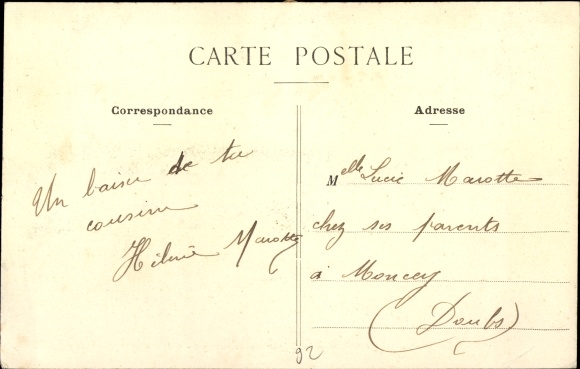 CARTE POSTALE
Correspondance
Adresse
Un baiser de ta
cousine
Marotte
Melle Lucie Marotte
chez ses parents
à Moncey
(Doubs)
92